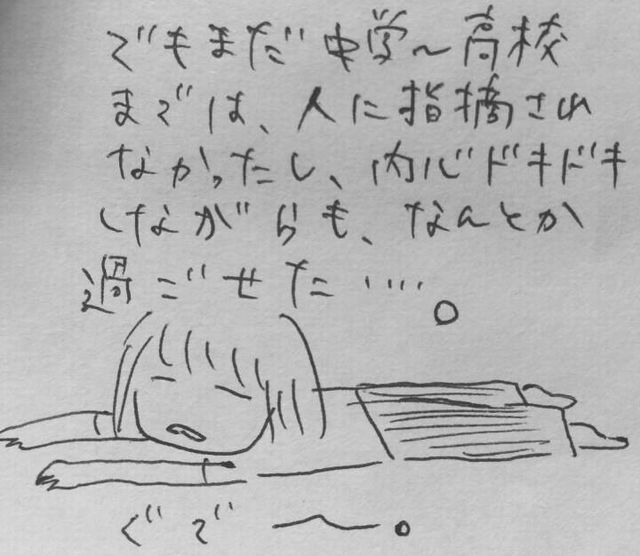 でもまだ中学〜高校
までは、人に指摘され
なかったし、内心ドキドキ
しながらも、なんとか
過ごせた‥‥。
ぐで〜。